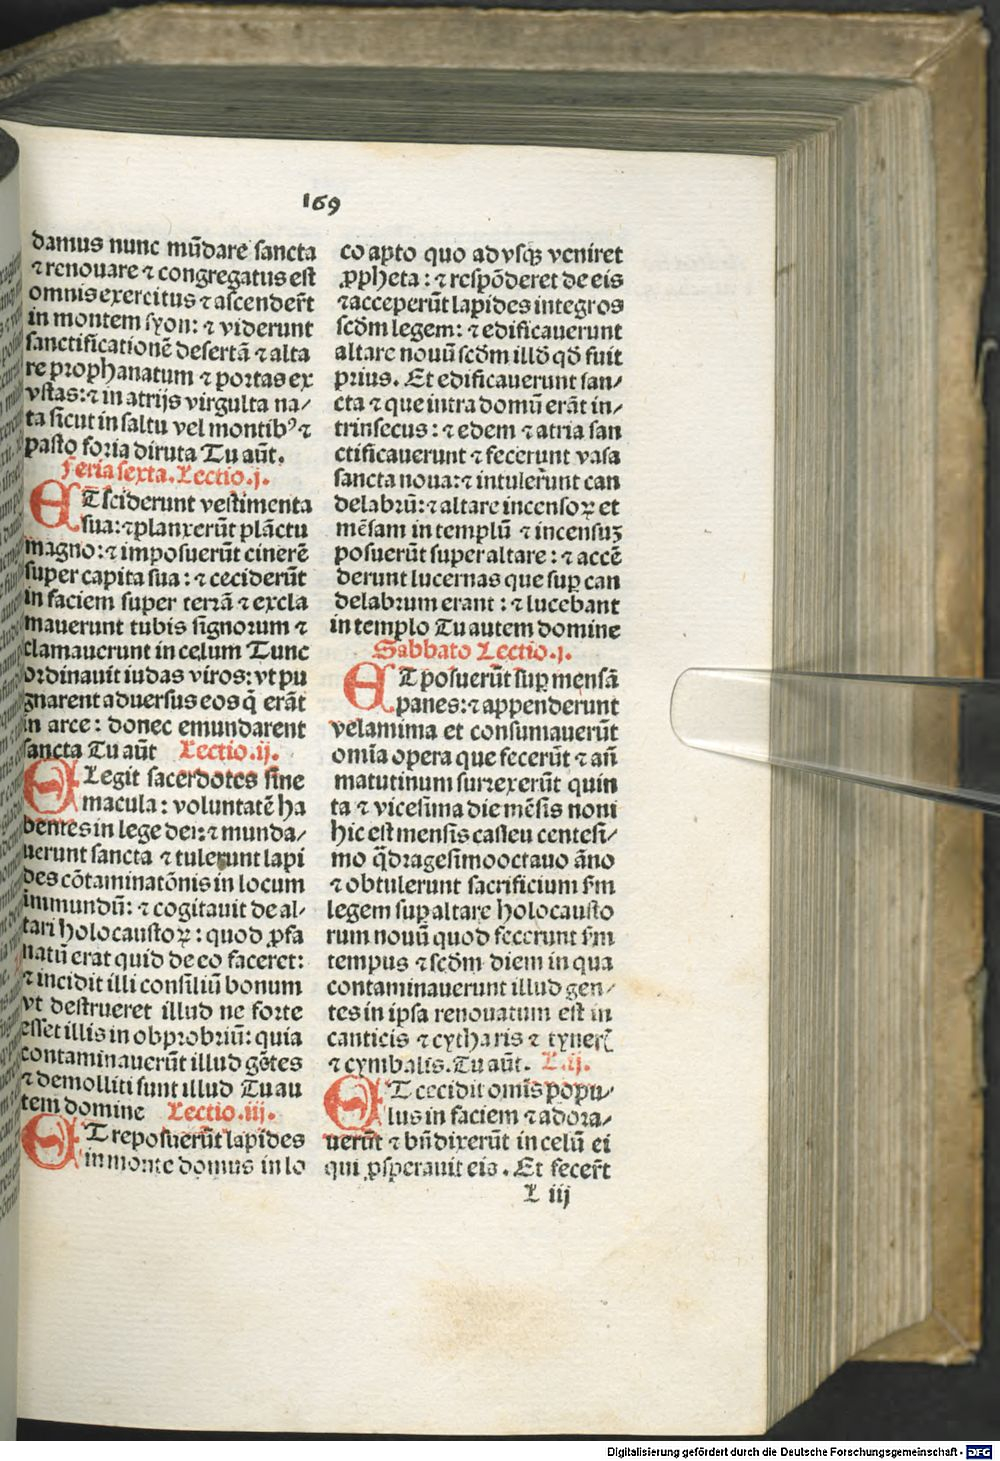 169
damus nunc mūdare sancta
⁊ renouare ⁊ congregatus est
omnis exercitus ⁊ ascender̄t
in montem syon: ⁊ viderunt
sanctificationē desertā ⁊ alta
re prophanatum ⁊ portas ex
vstas: ⁊ in atrijs virgulta na/
ta sicut in saltu vel montibꝰ ⁊
pasto foria diruta Tu aūt.
Feria sexta. Lectio .j.
ET sciderunt vestimenta
sua: ⁊ planxerūt plāctu
magno: ⁊ imposuerūt cinerē
super capita sua: ⁊ ceciderūt
in faciem super terrā ⁊ excla
mauerunt tubis signorum ⁊
clamauerunt in celum Tunc
ordinauit iudas viros: vt pu
gnarent aduersus eos q̄ erāt
in arce: donec emundarent
sancta Tu aūt Lectio .ij.
ELegit sacerdotes sine
macula: voluntatē ha
bentes in lege dei: ⁊ munda/
uerunt sancta ⁊ tulerunt lapi
des cōtaminatōnis in locum
immundū: ⁊ cogitauit de al/
tari holocaustoꝝ: quod ꝓfa
natū erat quid de eo faceret:
⁊ incidit illi consiliū bonum
vt destrueret illud ne forte
esset illis in obprobriū: quia
contaminauerūt illud gētes
⁊ demolliti sunt illud Tu au
tem domine Lectio .iij.
ET reposuerūt lapides
in monte domus in lo
co apto quo ad vsqꝫ veniret
ꝓpheta: ⁊ respōderet de eis
⁊ acceperūt lapides integros
scđm legem: ⁊ edificauerunt
altare nouū scđm illđ qđ fuit
prius. Et edificauerunt san/
cta ⁊ que intra domū erāt in/
trinsecus: ⁊ edem ⁊ atria san
ctificauerunt ⁊ fecerunt vasa
sancta noua: ⁊ intulerunt can
delabrū: ⁊ altare incensoꝝ et
mēsam in templū ⁊ incensuꝫ
posuerūt super altare: ⁊ accē
derunt lucernas que suꝑ can
delabrum erant: ⁊ lucebant
in templo Tu autem domine
Sabbato Lectio .j.
ET posuerūt suꝑ mensā
panes: ⁊ appenderunt
velamima et consumauerūt
omīa opera que fecerūt ⁊ añ
matutinum surrexerūt quin
ta ⁊ vicesima die mēsis noni
hic est mensis casleu centesi/
mo q̄dragesimooctauo āno
⁊ obtulerunt sacrificium ſm̄
legem suꝑ altare holocausto
rum nouū quod fecerunt ſm̄
tempus ⁊ scđm diem in qua
contaminauerunt illud gen/
tes in ipsa renouatum est in
canticis ⁊ cytharis ⁊ cyner̄
⁊ cymbalis. Tu aūt. L.ij.
ET cecidit omīs popu/
lus in faciem ⁊ adora/
uerūt ⁊ bn̄dixerūt in celū ei
qui ꝓsperauit eis. Et fecer̄t
L iij
Digitalisierung gefördert durch die Deutsche Forschungsgemeinschaft - DFG